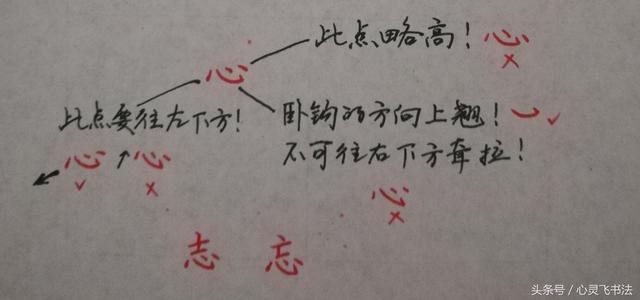 此点略高！ 心 ×
心
此点要往左下方！ 卧钩的方向上翘！ ✓
不可往右下方耷拉！
心 ✓ 心 ×
心 ×
志 忘
头条号 / 心灵飞书法